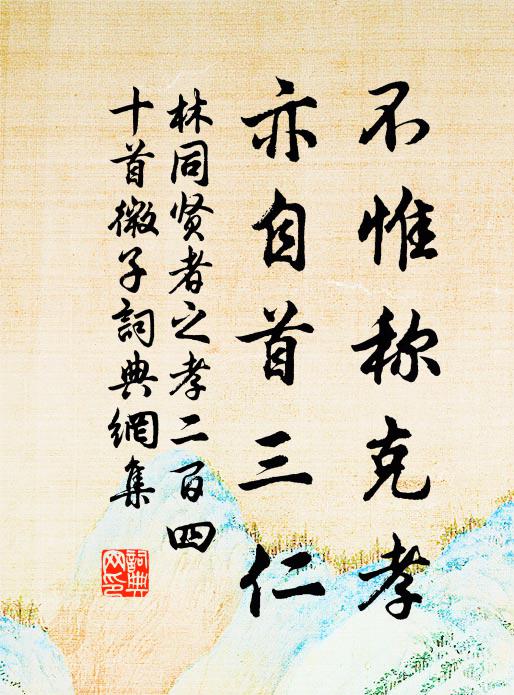 不惟称克孝
亦自首三仁
林同贤者之孝二百四
十首微子詞典網集
詞典
网印